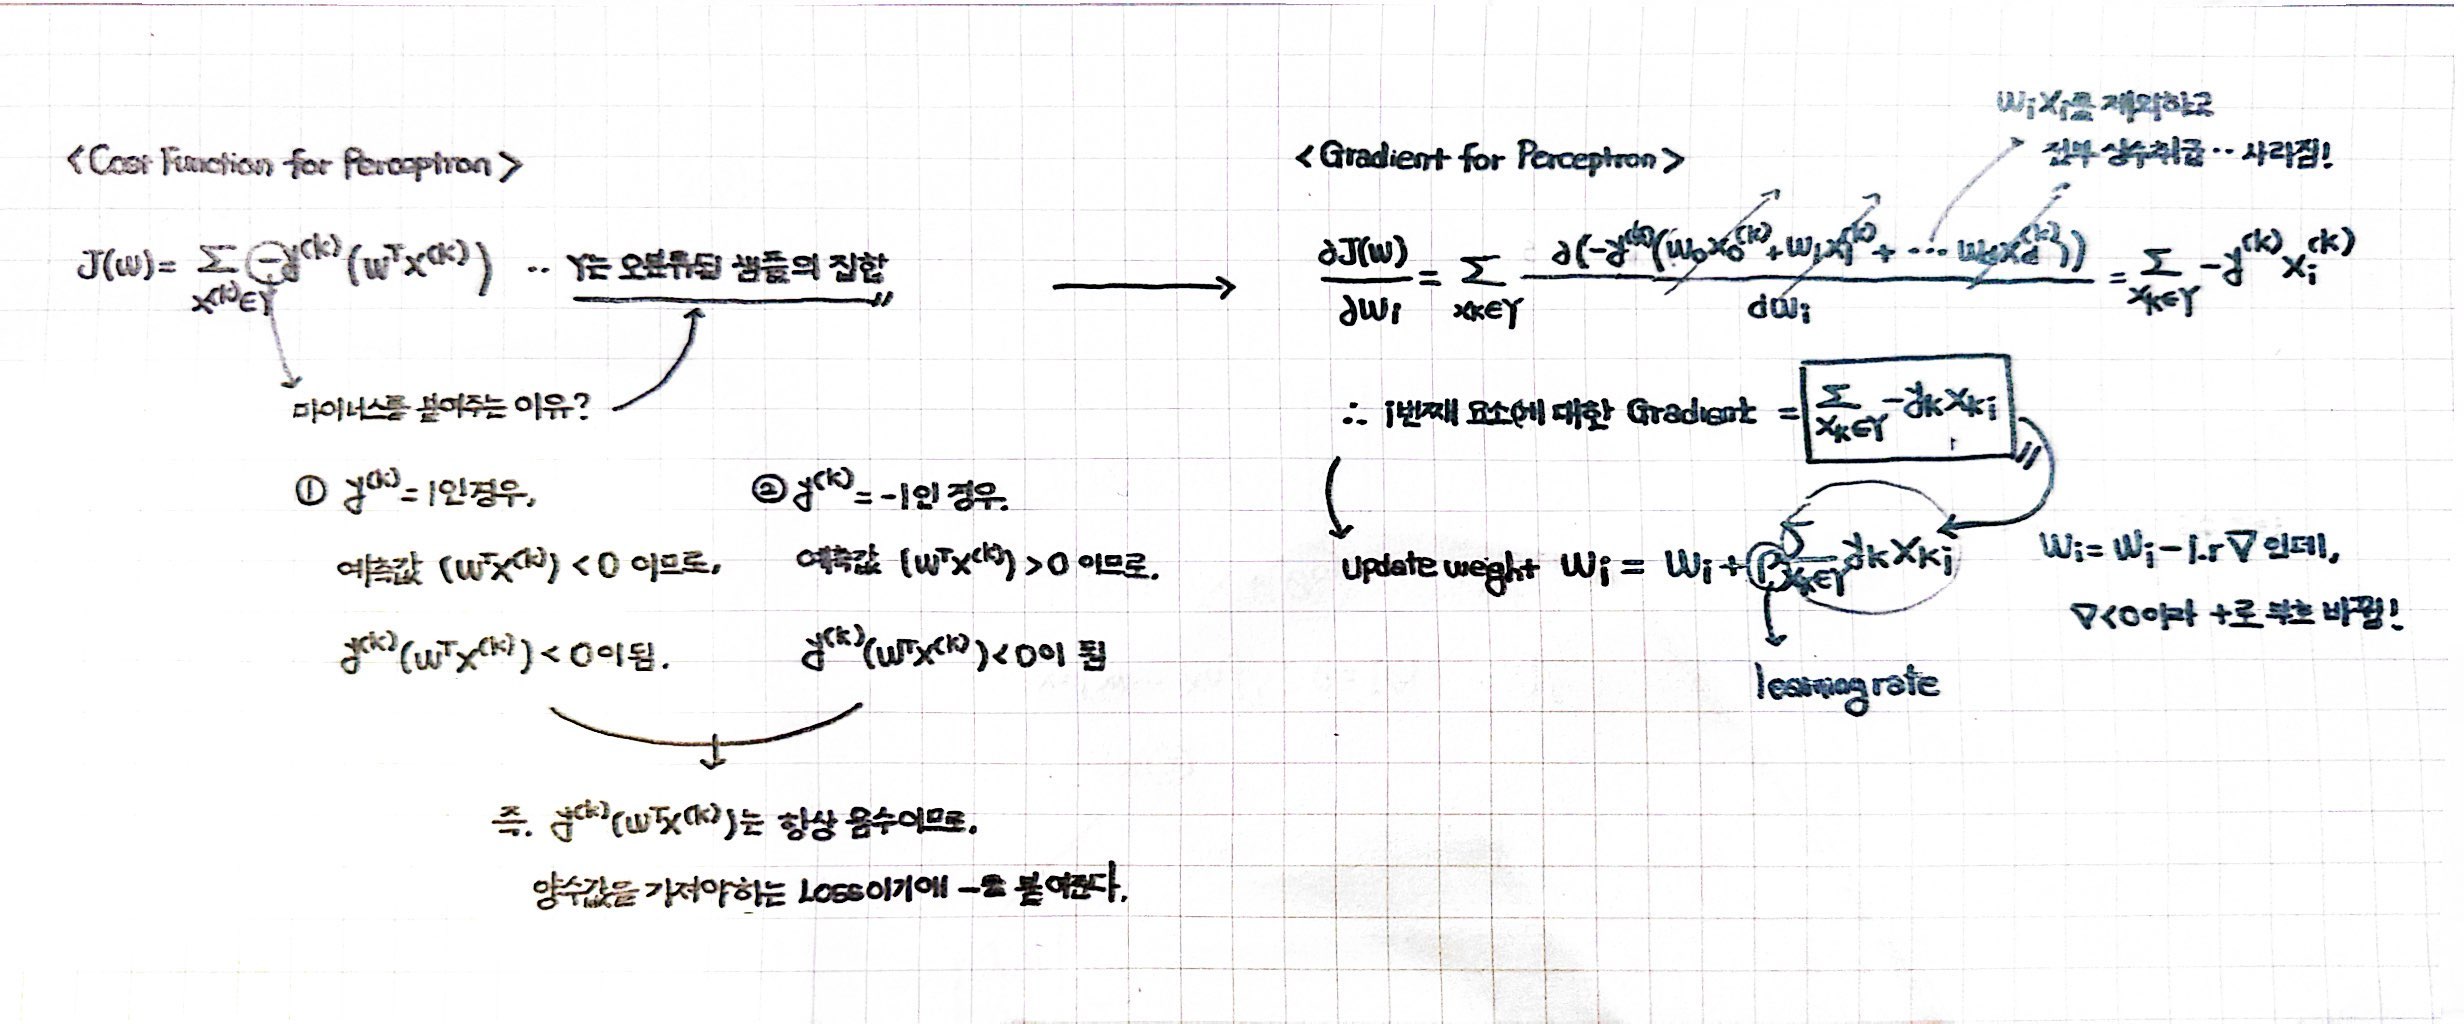 <Cost Function for Perceptron>
J(w) = Σ -y^(k) (w^T x^(k)) ‥ Y는 오분류된 샘플의 집합
x^(k)∈Y
마이너스를 붙여주는 이유?
① y^(k) = 1인 경우,
예측값 (w^T x^(k)) < 0 이므로,
y^(k)(w^T x^(k)) < 0이 됨.
② y^(k) = -1인 경우.
예측값 (w^T x^(k)) > 0 이므로.
y^(k)(w^T x^(k)) < 0이 됨
즉. y^(k)(w^T x^(k))는 항상 음수이므로.
양수값을 가져야하는 Loss이기에 -를 붙여준다.
w_i x_i를 제외하고
전부 상수취급‥사라짐!
<Gradient for Perceptron>
∂J(w)/∂w_i = Σ_{x_k∈Y} ∂(-y^(k)(w_0 x_0^(k) + w_1 x_1^(k) + ⋯ w_d x_d^(k)))/∂w_i = Σ_{x_k∈Y} -y^(k) x_i^(k)
∴ i번째 요소에 대한 Gradient = Σ_{x_k∈Y} -y_k x_ki
update weight w_i = w_i + ρ Σ_{x_k∈Y} y_k x_ki
learning rate
w_i = w_i - l.r ∇ 인데,
∇<0이라 +로 부호 바뀜!